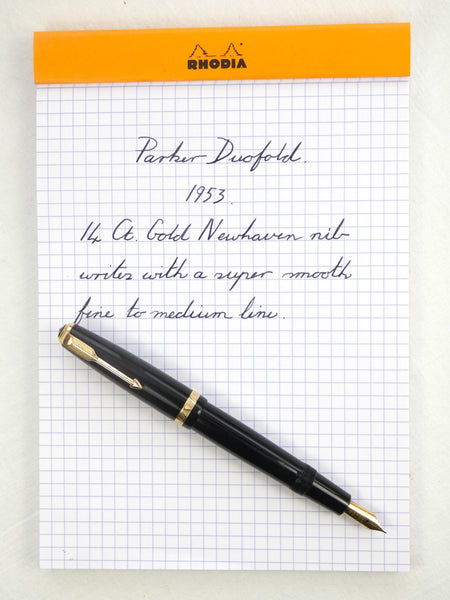 RHODIA
Parker Duofold.
1953.
14 Ct. Gold Newhaven nib
writes with a super smooth
fine to medium line.